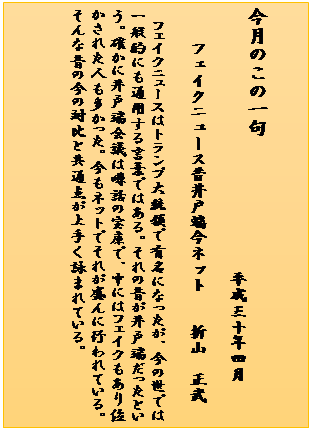 今月のこの一句
平成三十年四月
フェイクニュース昔井戸端今ネット　折山　正武
フェイクニュースはトランプ大統領で有名になったが、今の世では
一般的にも通用する言葉ではある。それの昔が井戸端だったとい
う。確かに井戸端会議は噂話の宝庫で、中にはフェイクもあり泣
かされた人も多かった。今もネットでそれが盛んに行われている。
そんな昔の今の対比と共通点が上手く詠まれている。